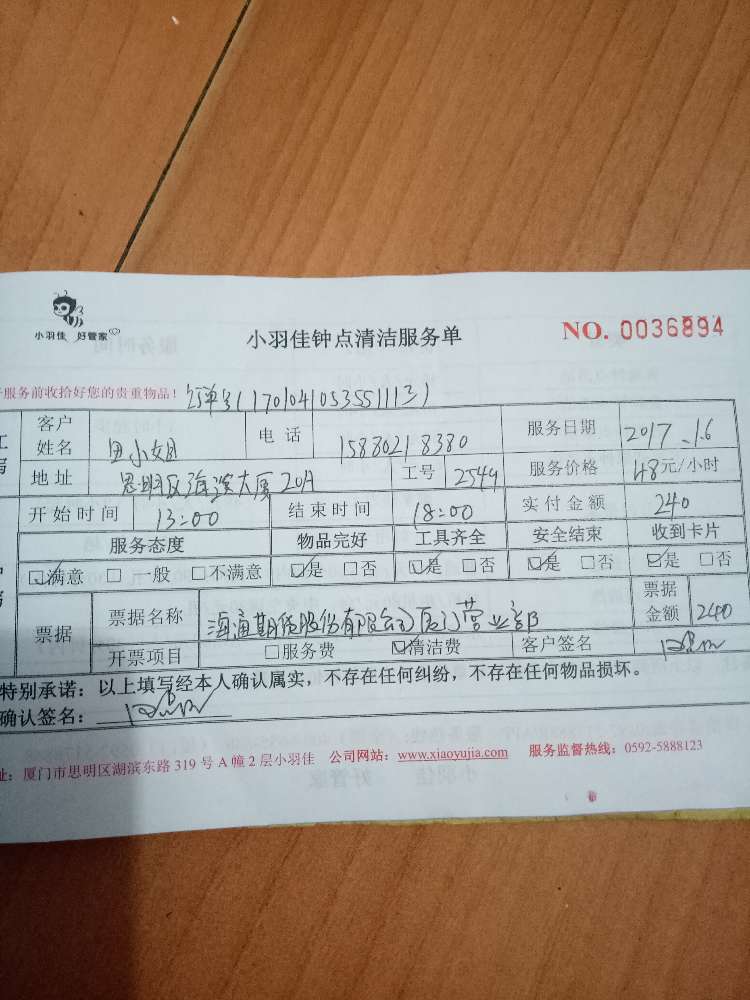 小羽佳 好管家
小羽佳钟点清洁服务单 NO. 0036894
服务前收拾好您的贵重物品！订单号(17010410535511131)
客户姓名 田小姐 电话 15880218380 服务日期 2017.1.6
地址 思明区海滨大厦20A 工号 2549 服务价格 48元/小时
开始时间 13:00 结束时间 18:00 实付金额 240
服务态度 物品完好 工具齐全 安全结束 收到卡片
☑满意 □ 一般 □不满意 ☑是 □否 ☑是 □否 ☑是 □否 ☑是 □否
票据 票据名称 海通期货股份有限公司厦门营业部 票据金额 240
开票项目 □服务费 ☑清洁费 客户签名
特别承诺：以上填写经本人确认属实，不存在任何纠纷，不存在任何物品损坏。
确认签名：
址：厦门市思明区湖滨东路 319 号 A 幢 2 层小羽佳 公司网站：www.xiaoyujia.com 服务监督热线：0592-5888123